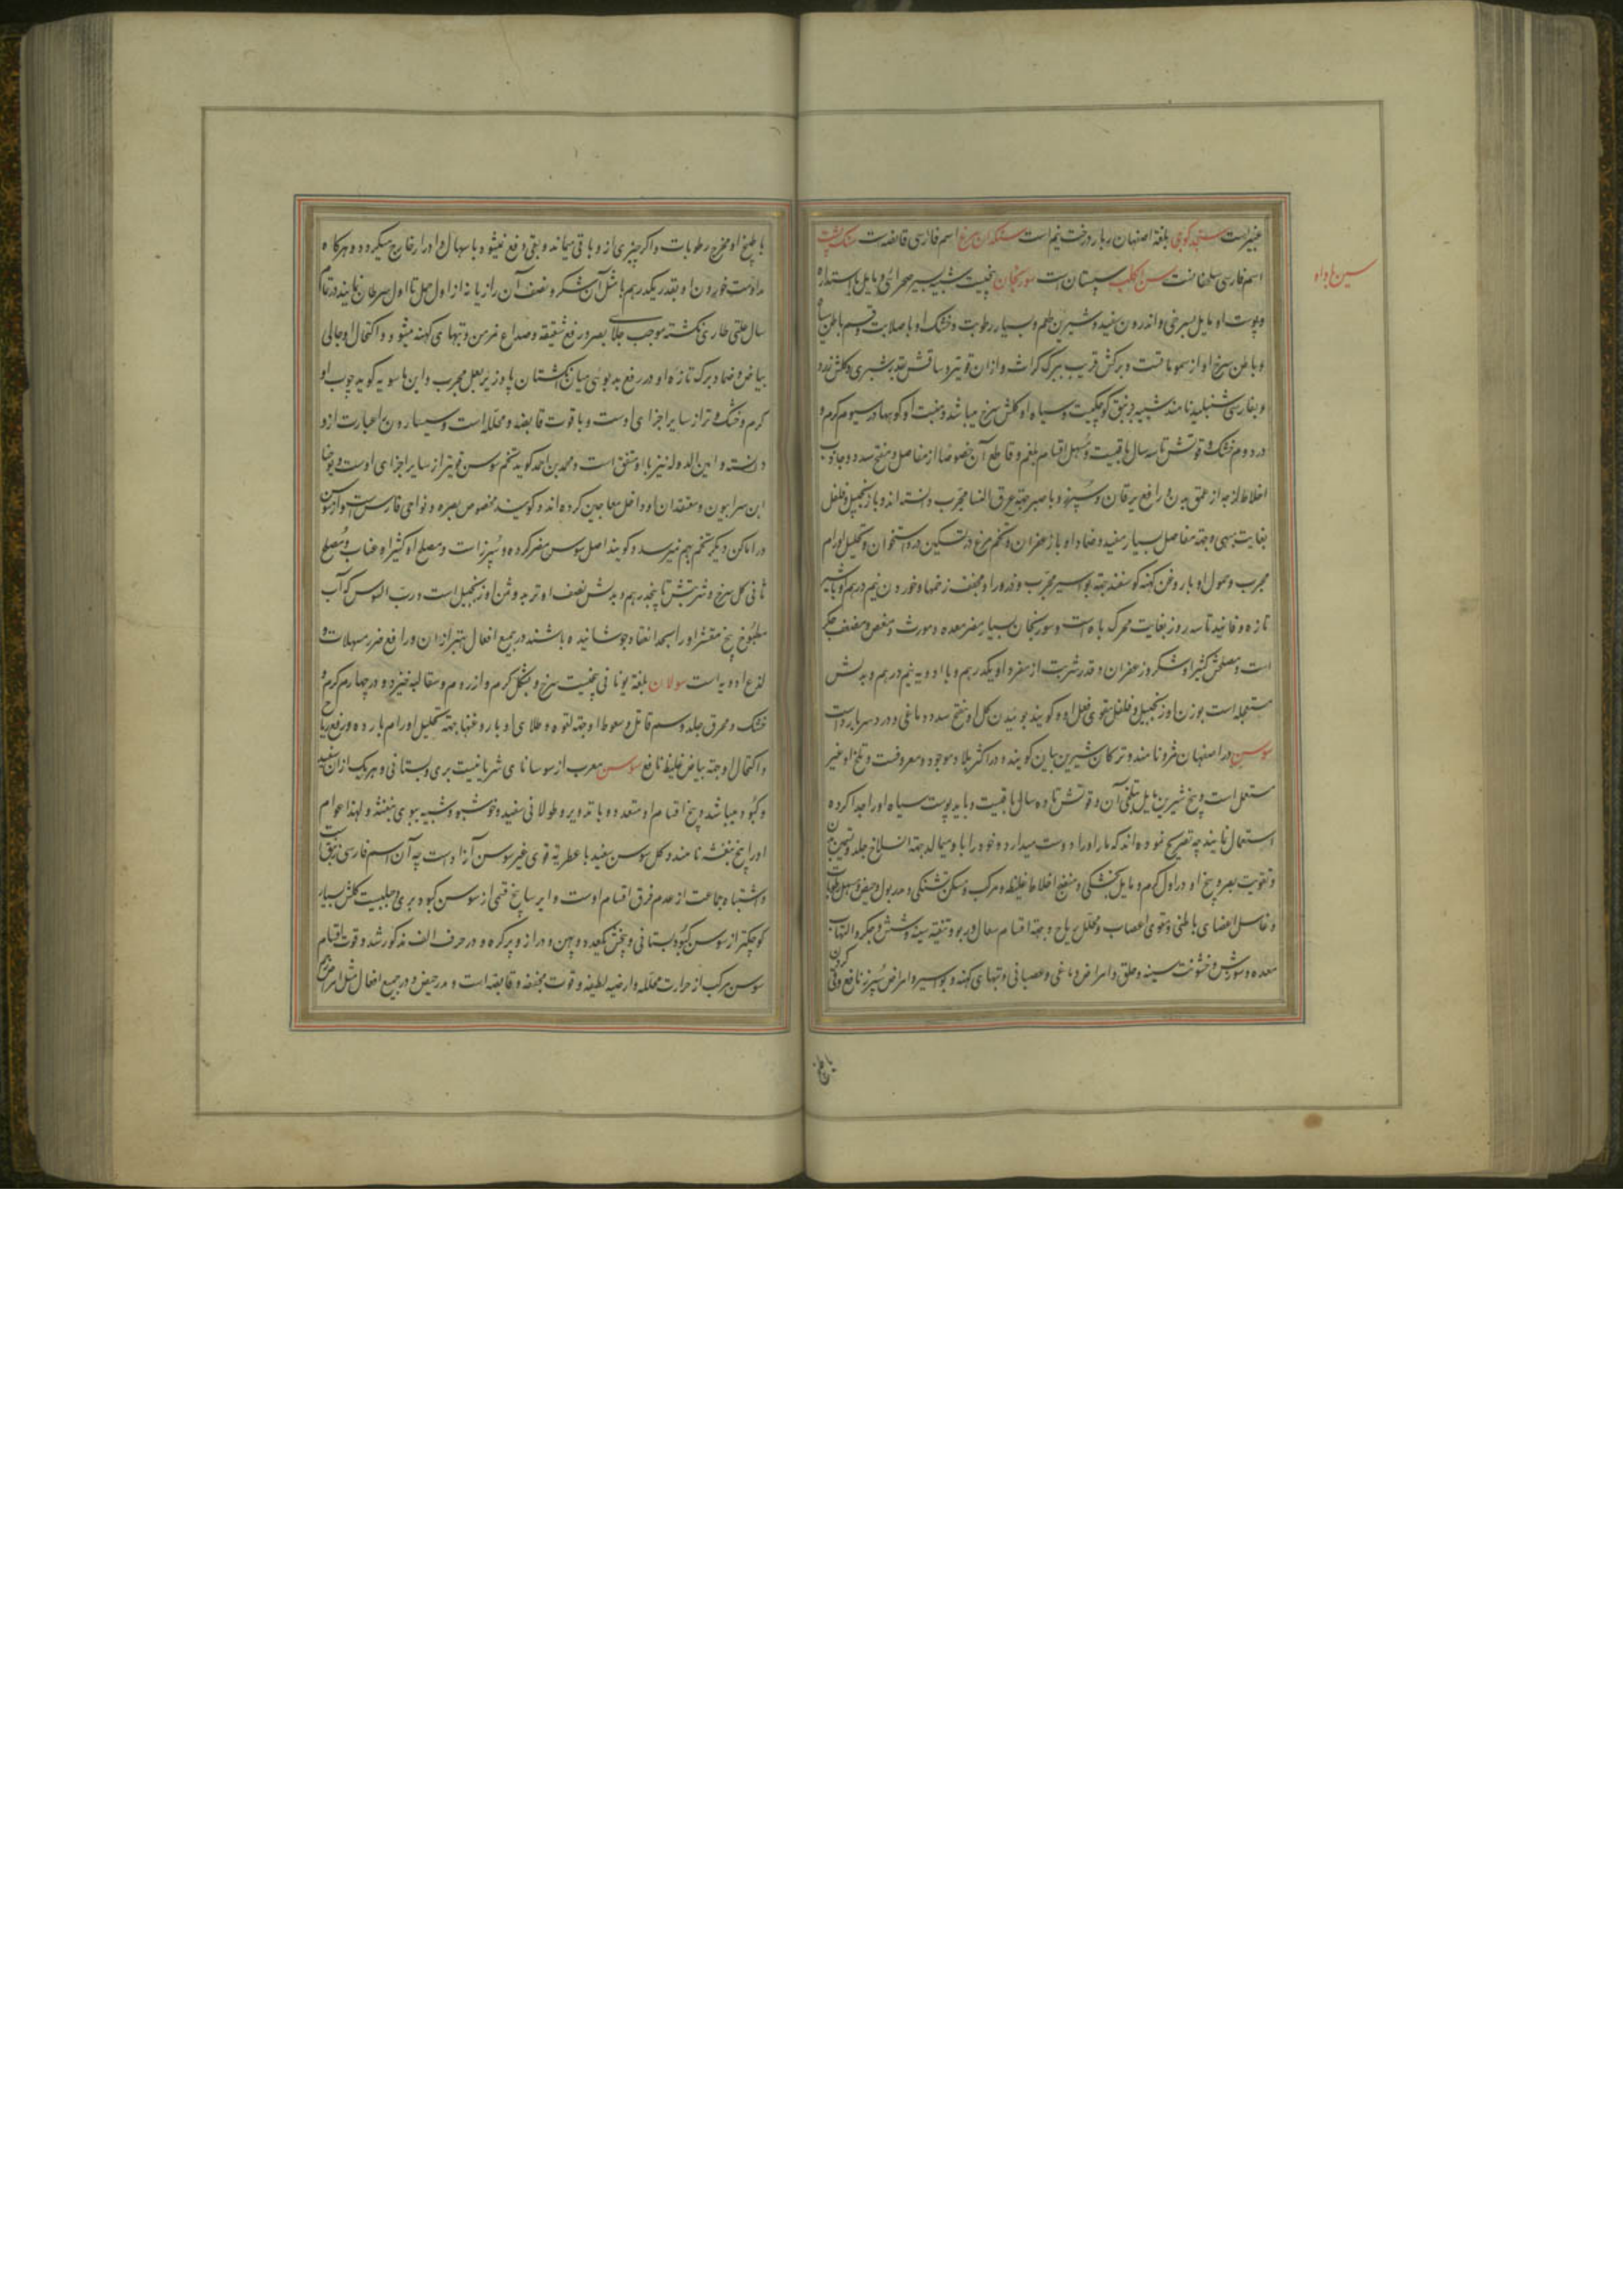 غبیراست سنجد کوچی بلغة اصفهان بار درخت نیم است سنکدان مرغ اسم فارسی قانصه است سنک پشت
سین با واو
اسم فارسی سلحفا تست سن الکلب سپستان است سورنجان بیخیست شبیه بسیر صحرائی و مایل باستداره
و پوست او مایل بسرخی و اندرون سفید و شیرین طعم و بسیار رطوبت و خشک او با صلابت و قسم باطن سیاه
و باطن سرخ او از سموماتست و برکش قریب ببرک کراث و از ان قویتر و ساقش بقدر شبری و کلش زرد
و بفارسی شنبلید نامند شبیه بزنبق کوچکیست و سیاه او کلش سرخ میباشد و منبت او کوهها در سیوم کرم و
در دوم خشک و قوتش تا سه سال باقیست و مسهل اقسام بلغم و قاطع آن خصوصا از مفاصل و مفتح سدد و جاذب
اخلاط لزجه از عمق بدن و رافع یرقان و سپرز و با صبر جهة عرق النسا مجرب دانسته اند و با زنجبیل و فلفل
بغایت مبهی و جهة مفاصل بسیار مفید و ضماد او با زعفران و تخم مرغ در تسکین درد استخوان و تحلیل اورام
مجرب و حمول او با روغن کهنه کوسفند جهة بواسیر مجرب و ذرور او مجفف زخمها و خوردن نیم درهم او با شیر
تازه و فانید تا سه روز بغایت محرک باه است و سورنجان بسیار مضر معده و مورث مغص و مضعف جکر
است و مصلحش کثیرا و شکر و زعفران و قدر شربت از مفرد او یکدرهم و با ادویه نیم درهم و بدلش
مستعجله است بوزن او و زنجبیل و فلفل مقوی فعل او و کویند بوئیدن کل او مفتح سدد دماغی و درد سر بارد است
سوس در اصفهان مژو نامند و ترکان شیرین بیان کویند و در اکثر بلاد موجود و معروفست و تلخ او غیر
مستعمل است و بیخ شیرین مایل بتلخی آن و قوتش تا ده سال باقیست و باید پوست سیاه او را جدا کرده
استعمال نمایند چه تصریح نموده اند که مار او را دوست میدارد و خود را با و میمالد جهة انسلاخ جلد و تسمین بدن
و تقویت بصر و بیخ او در اول کرم و مایل بخشکی و منضج اخلاط غلیظه و مرکب و مسکن تشنکی و مدر بول و حیض و مسهل رطوبات
و غاسل اعضای باطنی و مقوی اعصاب و محلل ریاح و جهة اقسام سعال و ربو و تنقیه سینه و شش و جکر و التهاب
معده و سوزش و خشونت سینه و حلق و امراض دماغی و عصبانی و تبهای کهنه و بواسیر و امراض سپرز نافع و قی کردن
با طبخ او مخرج رطوبات و اکر چیزی از و باقی بماند و بقی دفع نشود با سهال و ادرار خارج میکردد و هرکاه
مداومت خوردن او بقدر یکدرهم با مثل آن شکر و نصف آن رازیانه از اول حمل تا اول سرطان نمایند در تمام
سال علتی طاری نکشته موجب جلای بصر و رفع شقیقه و صداع مزمن و تبهای کهنه میشود و اکتحال او جالی
بیاض و ضماد برک تازه او در رفع بدبوئی میان انکشتان پا و زیر بغل مجرب و ابن ماسویه کوید چوب او
کرم و خشک تر از سایر اجزای اوست و با قوت قابضه و محلله است و سیسارون عبارت از و
دانسته و امین الدوله نیز با او متفق است و محمد بن احمد کوید تخم سوس قویتر از سایر اجزای اوست و یوحنا
ابن سرابیون و معتقدان او داخل معاجین کرده اند و کویند مخصوص بصره و نواحی فارس است و از سوس
در اماکن دیکر تخم بهم نمیرسد و کویند اصل سوس مضر کرده و سپرز است و مصلح او کثیرا و عناب و مصلح
ثانی کل سرخ و شربتش تا پنجدرهم و بدلش نصف او تربد و ثمن او زنجبیل است و رب السوس که آب
مطبوخ بیخ مقشر او را بحد انعقاد جوشانیده باشند در جمیع افعال بهتر از ان و رافع ضرر مسهلات و
لذع ادویه است سولان بلغة یونانی بیخیست سرخ و بشکل کرم و از روم و سقالبه خیزد و در چهارم کرم و
خشک و محرق جلد و سم قاتل و سعوط او جهة لقوه و طلای او با روغنها جهة تحلیل اورام بارده و رفع ریاح
و اکتحال او جهة بیاض غلیظ نافع سوسن معرب از سوسانای سریانیست بری و بستانی و هر یک از ان سفید
و کبود میباشد و بیخ اقسام او متعدد و با تدویر و طولانی سفید و خوشبو و شبیه ببوی بنفشه و لهذا عوام
او را بیخ بنفشه نامند و کل سوسن سفید با عطریة قوی غیر سوسن آزاد است چه آن اسم فارسی زنبق است
و اشتباه جماعت از عدم فرق اقسام اوست و ایرسا بیخ قسمی از سوسن کبود بری و جبلیست کلش بسیار
کوچکتر از سوسن کبود بستانی و بیخش بکعدد و پهن و دراز و پرکره و در حرف الف مذکور شد و قوت اقسام
سوسن مرکب از حرارت محلله و ارضیه لطیفه و قوت مجففه و قابضه است و مدر حیض و در جمیع افعال مثل
باطخ